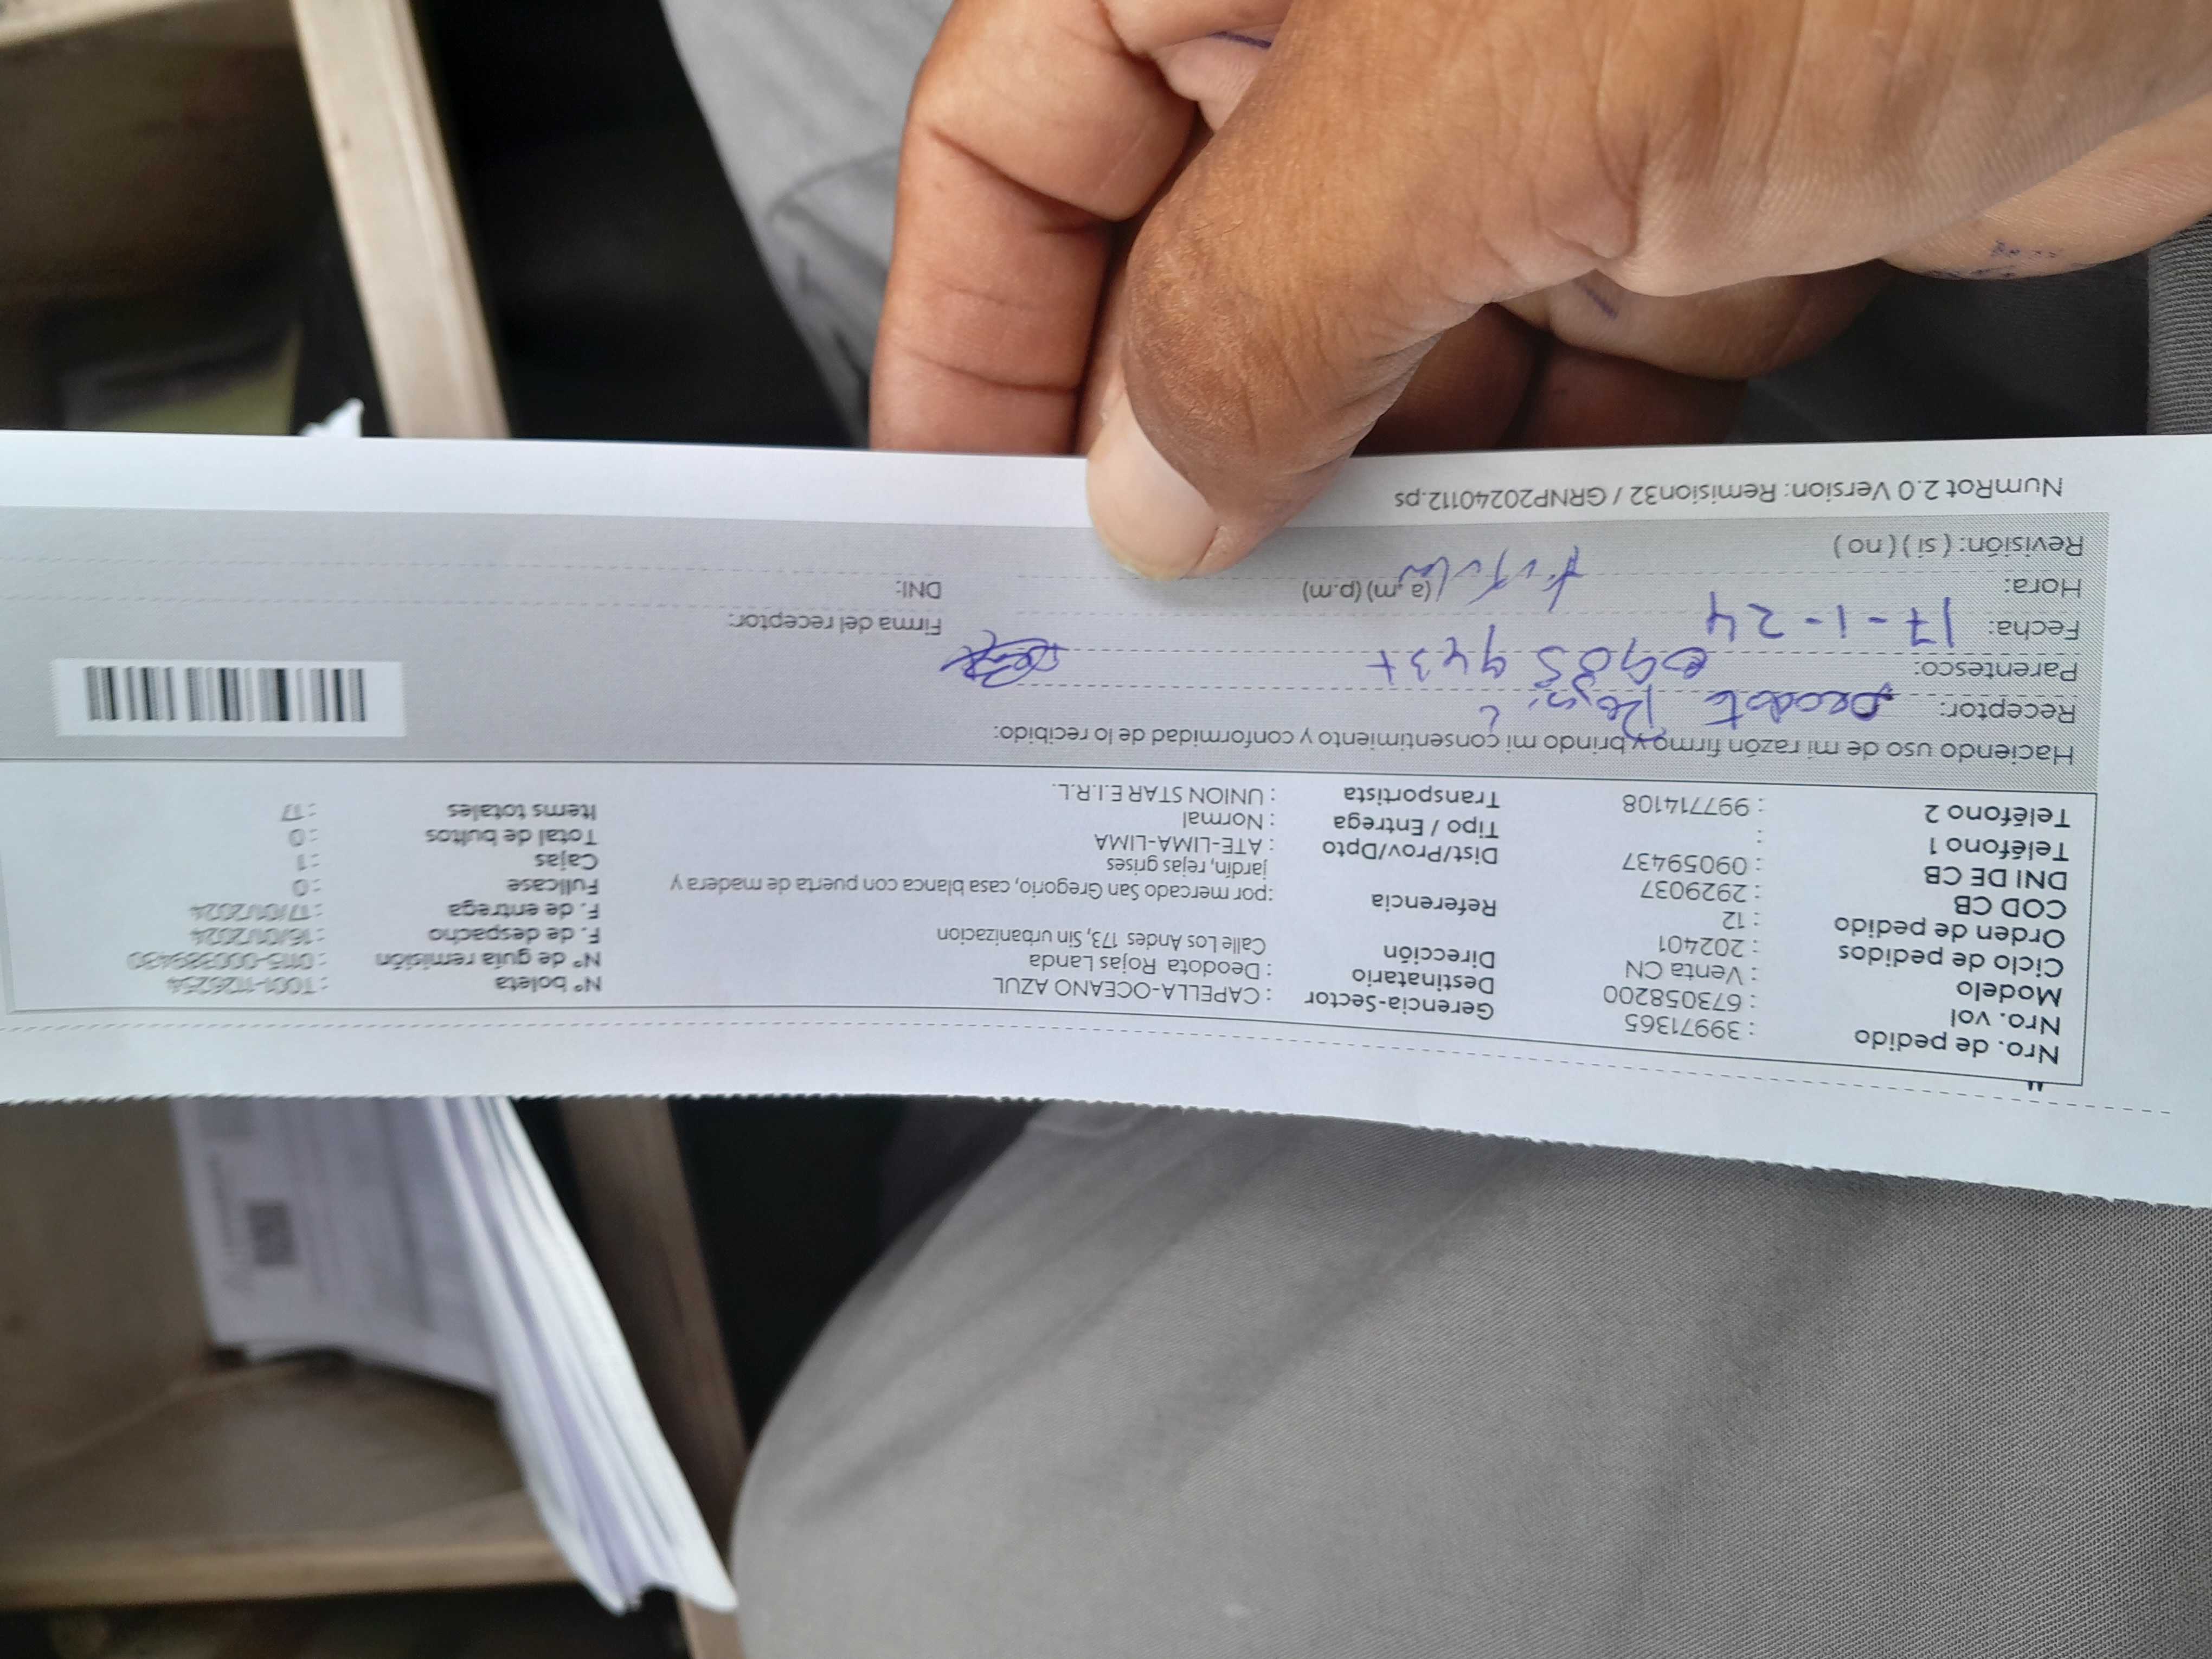 Nro. de pedido : 39971365
Nro. vol : 673058200
Modelo : Venta CN
Ciclo de pedidos : 202401
Orden de pedido : 12
COD CB : 2929037
DNI DE CB : 09059437
Teléfono 1 :
Teléfono 2 : 997714108
Gerencia-Sector : CAPELLA-OCEANO AZUL
Destinatario : Deodota Rojas Landa
Dirección Calle Los Andes 173, Sin urbanizacion
Referencia :por mercado San Gregorio, casa blanca con puerta de madera y
jardín, rejas grises
Dist/Prov/Dpto : ATE-LIMA-LIMA
Tipo / Entrega : Normal
Transportista : UNION STAR E.I.R.L.
N° boleta : T001-1126254
N° de guía remisión : 0115-000389430
F. de despacho : 16/01/2024
F. de entrega : 17/01/2024
Fullcase : 0
Cajas : 1
Total de bultos : 0
Items totales : 17
Haciendo uso de mi razón firmo y brindo mi consentimiento y conformidad de lo recibido:
Receptor:
Parentesco:
Fecha: 17-1-24
Hora: (a.m) (p.m)
Revisión: ( sí ) ( no )
Firma del receptor:
DNI:
NumRot 2.0 Version: Remision32 / GRNP20240112.ps